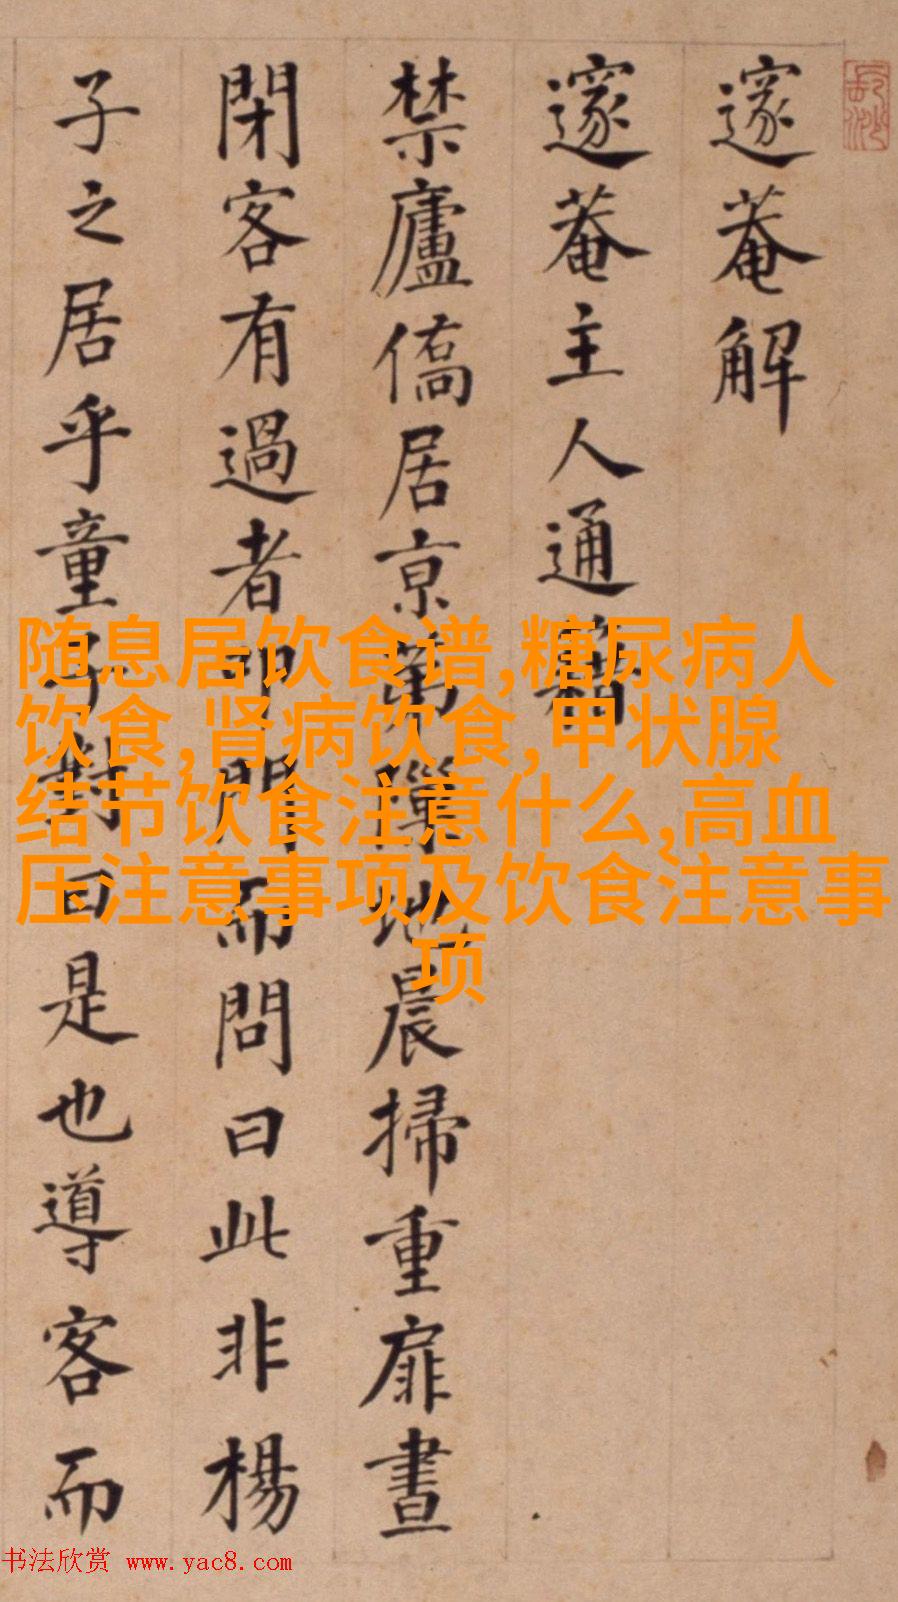 邃菴解
邃菴主人通籍
禁廬僑居京地晨掃重扉晝
閉客有過者叩門而問曰此非楊
子之居乎童子對曰是也導客而
随息居饮食谱,糖尿病人
饮食,肾病饮食,甲状腺
结节饮食注意什么,高血
压注意事项及饮食注意事
项
书法欣赏 www.yac8.com